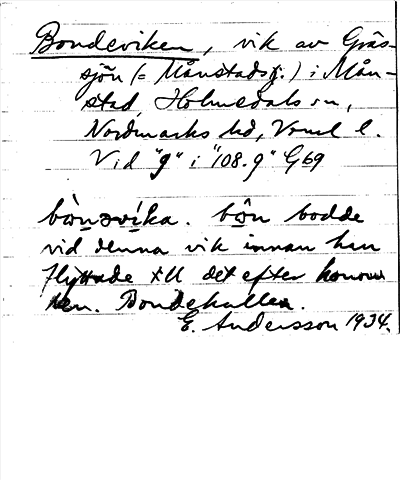 Bondeviken, vik av Gräs-
sjön (= Månstadsj.) i Mån-
stad, Holmedals sn,
Nordmarks hd, Vrml l.
Vid "g" i "108.9" G69
bònəvíka. bón bodde
vid denna vik innan han
flyttade till det efter honom
Bondehallen.
E. Andersson 1934.